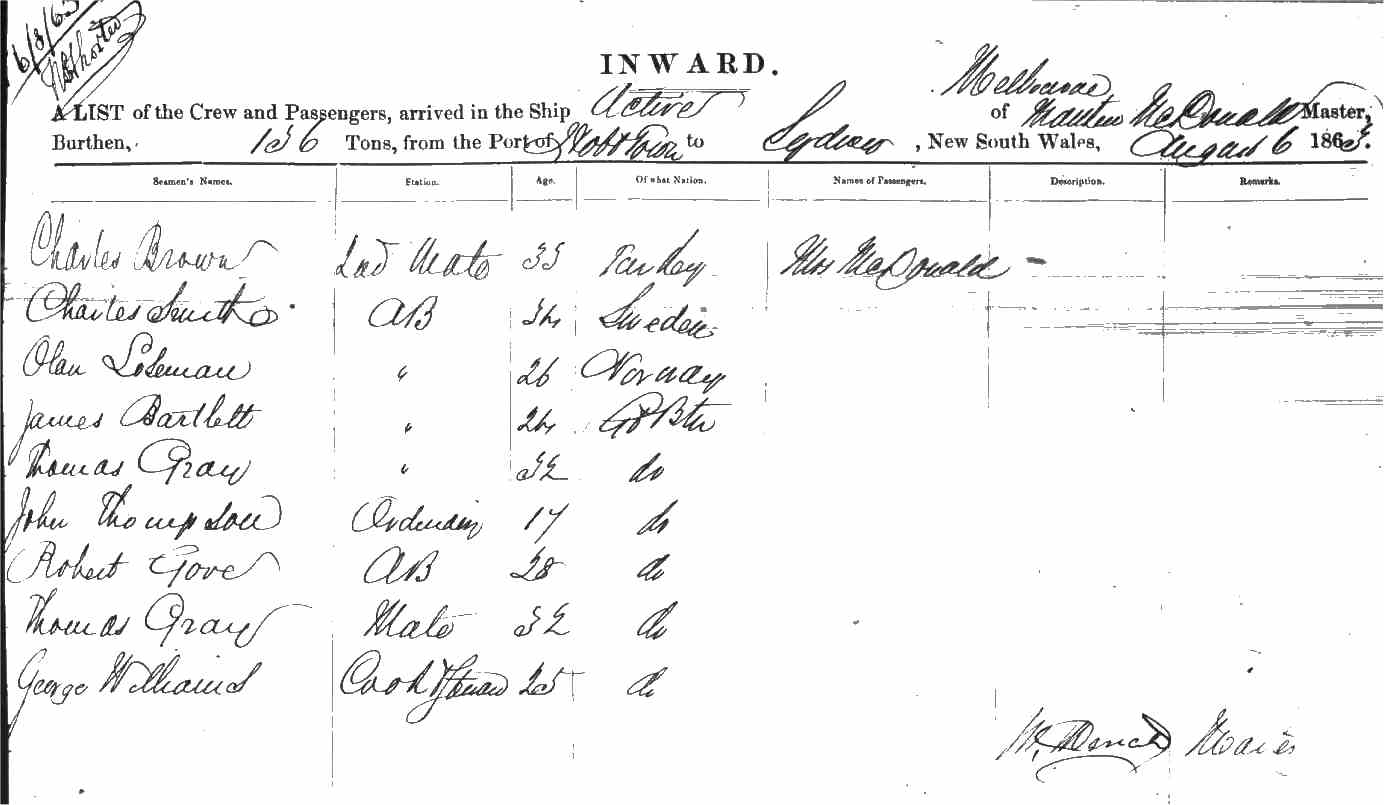 6/8/63
INWARD.
Melbourne
A LIST of the Crew and Passengers, arrived in the Ship Active of McDonald Master,
Burthen, 136 Tons, from the Port of Hobt Town to Sydney, New South Wales, August 6 1863.
Seamen's Names. Station. Age. Of what Nation. Names of Passengers. Description. Remarks.
Charles Brown 2nd Mate 35 Turkey Mrs McDonald -
Charles Smith AB 34 Sweden
Olan " 26 Norway
James Bartlett " 24 Gt Btn
Thomas Gray " 32 do
John Thompson Ordinary 17 do
Robert Gove AB 28 do
Thomas Gray Mate 32 do
George Williams Cook & Steward 25 do